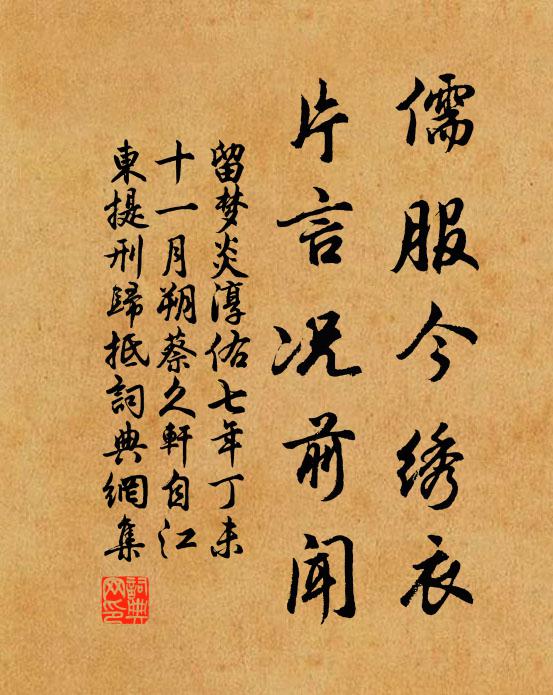 儒服今绣衣
片言况前闻
留梦炎淳佑七年丁未
十一月朔蔡久軒自江
東提刑歸抵詞典網集
詞典
网印